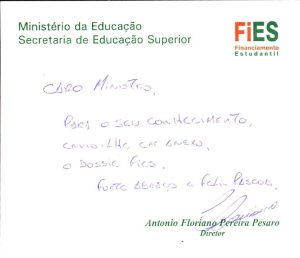 Ministério da Educação
Secretaria de Educação Superior
FiES
Financiamento
Estudantil
CARO MINISTRO,
PARA O SEU CONHECIMENTO,
ENVIO-LHE, EM ANEXO,
O DOSSIE FIES.
FORTE ABRAÇO E FELIZ PÁSCOA,
Antonio Floriano Pereira Pesaro
Diretor